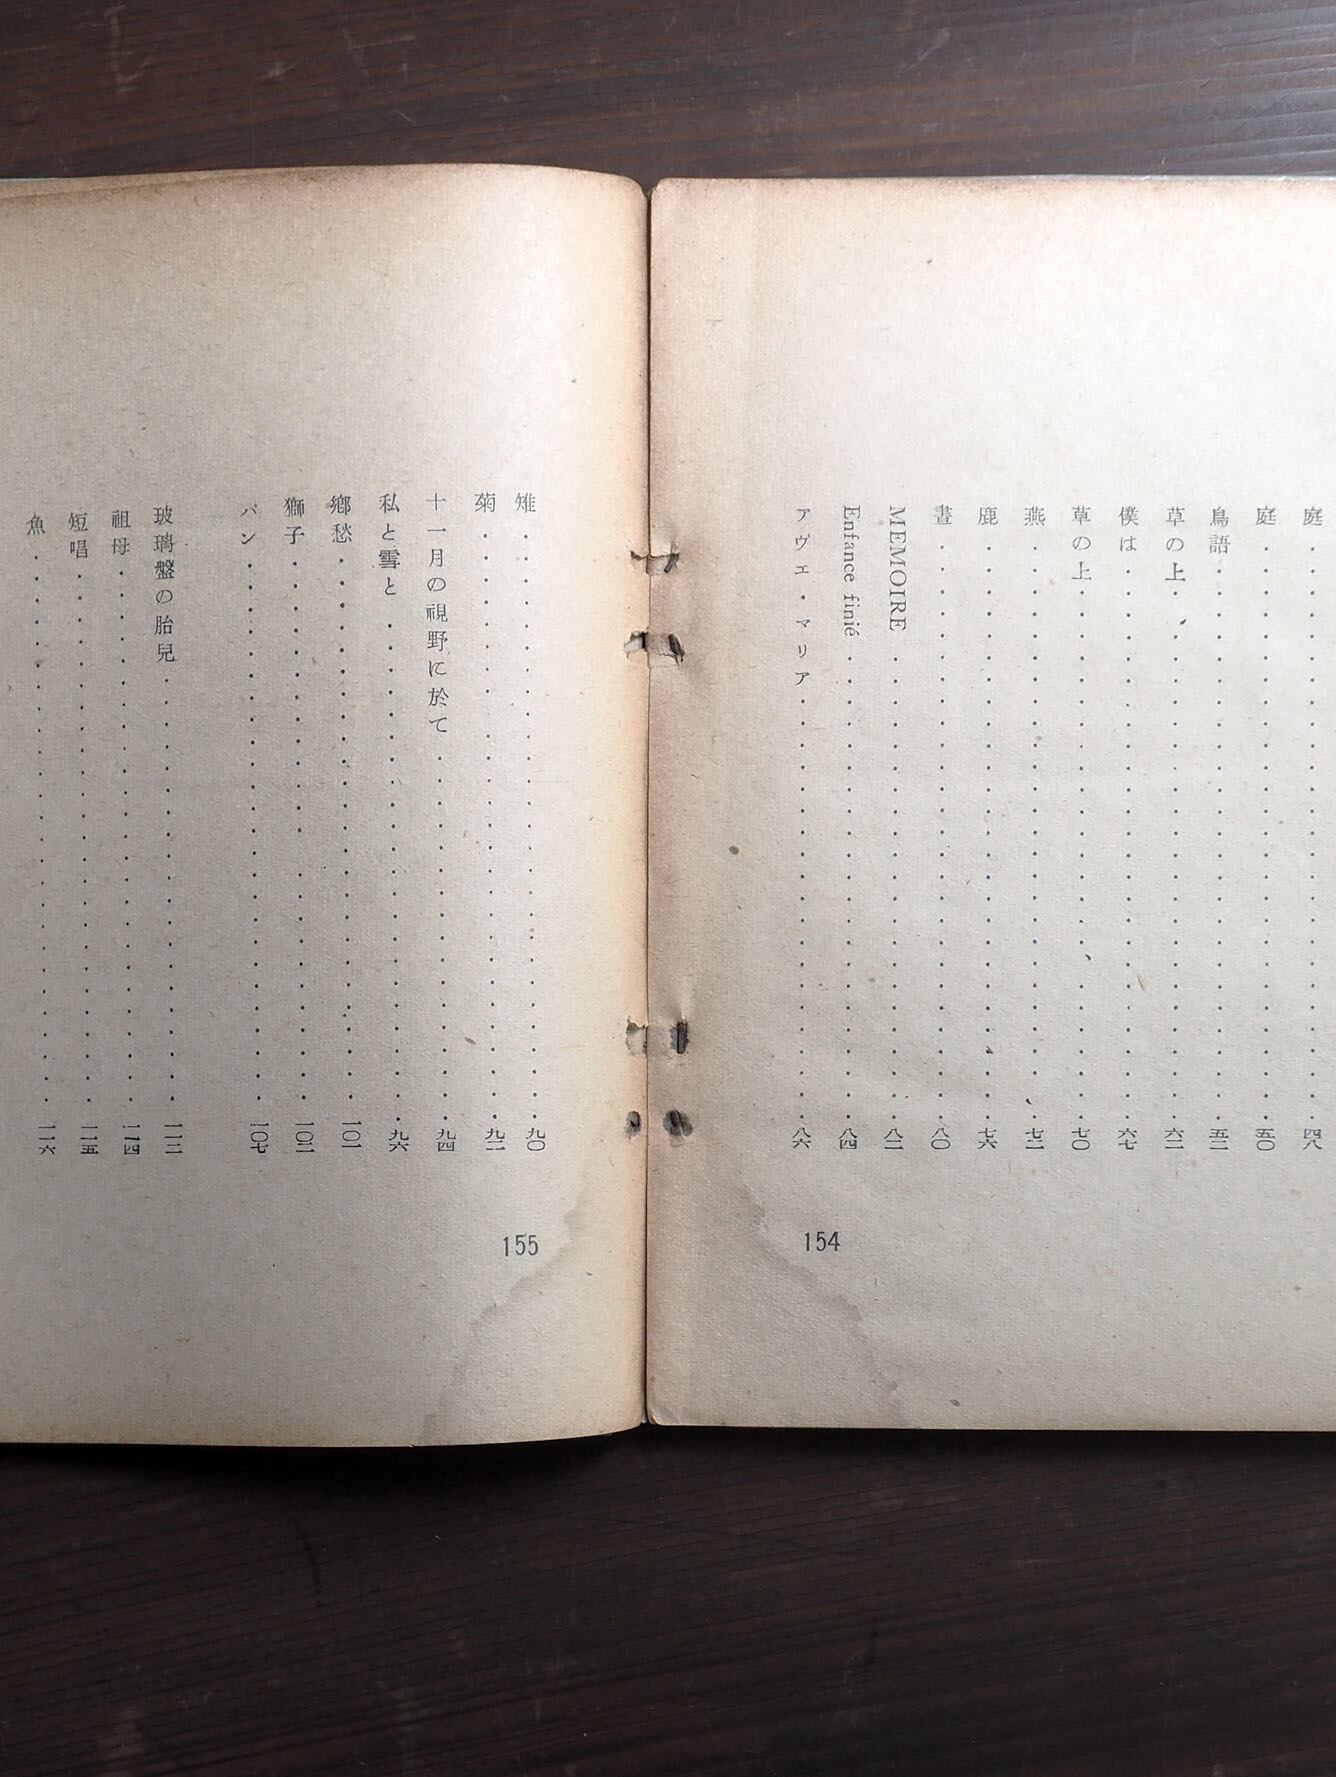 庭・・・・・・・・・・四八
庭・・・・・・・・・・五〇
鳥語・・・・・・・・・・五三
草の上・・・・・・・・・・六二
僕は・・・・・・・・・・六七
草の上・・・・・・・・・・七〇
燕・・・・・・・・・・七二
鹿・・・・・・・・・・七六
晝・・・・・・・・・・八〇
MEMOIRE・・・・・・・・・・八二
Enfance finié・・・・・・・・・・八四
アヴェ・マリア・・・・・・・・・・八六
154
雉・・・・・・・・・・九〇
菊・・・・・・・・・・九二
十一月の視野に於て・・・・・・・・・・九四
私と雪と・・・・・・・・・・九六
鄕愁・・・・・・・・・・一〇一
獅子・・・・・・・・・・一〇二
パン・・・・・・・・・・一〇七
玻璃盤の胎兒・・・・・・・・・・一一二
祖母・・・・・・・・・・一一四
短唱・・・・・・・・・・一一五
魚・・・・・・・・・・一一六
155